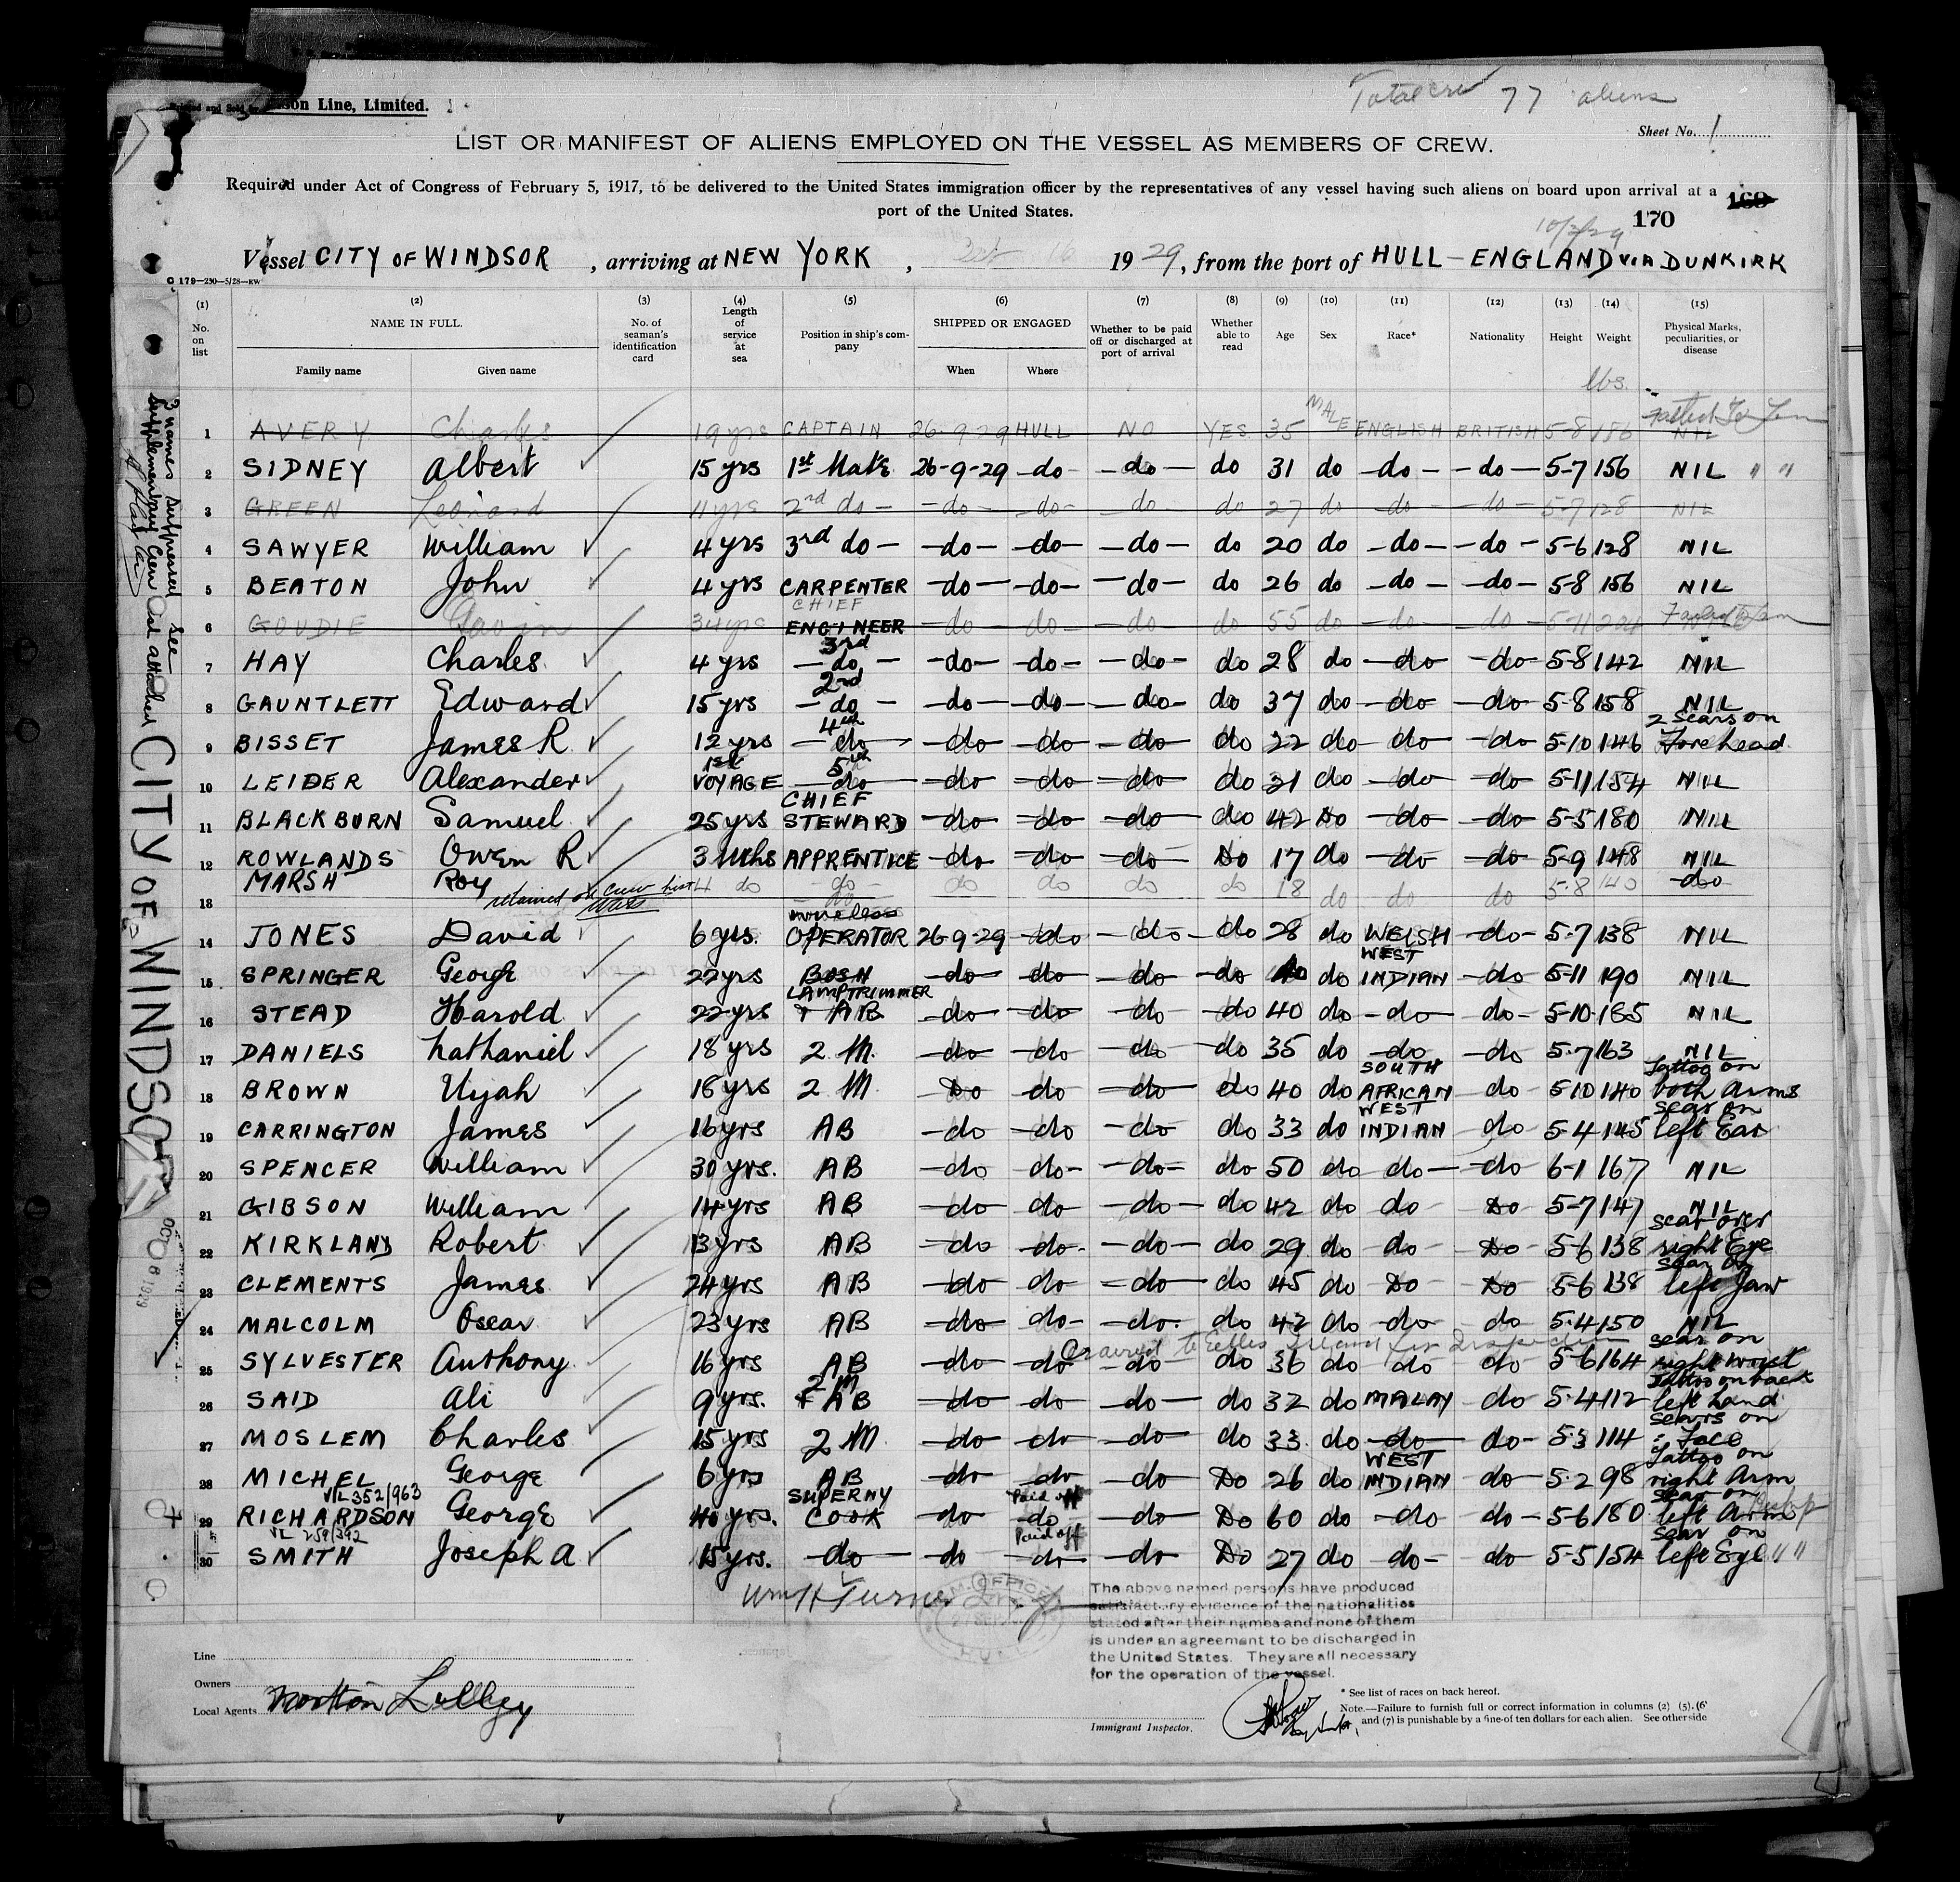 Printed and Sold by
son Line, Limited.
Total crew 77 aliens
Sheet No. 1
LIST OR MANIFEST OF ALIENS EMPLOYED ON THE VESSEL AS MEMBERS OF CREW.
Required under Act of Congress of February 5, 1917, to be delivered to the United States immigration officer by the representatives of any vessel having such aliens on board upon arrival at a
port of the United States.
160
170
10/2/29
Vessel CITY OF WINDSOR, arriving at NEW YORK, 16 1929, from the port of HULL - ENGLAND VIA DUNKIRK
C 179-250-5/28-RW
(1) No. on list
(2) NAME IN FULL. Family name Given name
(3) No. of seaman's identification card
(4) Length of service at sea
(5) Position in ship's company
(6) SHIPPED OR ENGAGED When Where
(7) Whether to be paid off or discharged at port of arrival
(8) Whether able to read
(9) Age
(10) Sex
(11) Race*
(12) Nationality
(13) Height
(14) Weight
(15) Physical Marks, peculiarities, or disease
lbs.
1 AVERY Charles 19 yrs CAPTAIN 26-9-29 HULL NO YES 35 MALE ENGLISH BRITISH 5-8 186 NIL
2 SIDNEY Albert 15 yrs 1st Mate 26-9-29 -do- -do- do 31 do -do- -do- 5-7 156 NIL " "
3 GREEN Leonard 11 yrs 2nd do -do- -do- do do 27 do do do 5-7 128 NIL
4 SAWYER William 4 yrs 3rd do -do- -do- -do- do 20 do -do- -do- 5-6 128 NIL
5 BEATON John 4 yrs CARPENTER -do- -do- -do- do 26 do -do- -do- 5-8 156 NIL
6 GOUDIE Gavin 34 yrs CHIEF ENGINEER -do- do do do 55 do do do 5-11
7 HAY Charles 4 yrs 3rd do -do- -do- -do- do 28 do -do -do- 5-8 142 NIL
8 GAUNTLETT Edward 15 yrs 2nd do -do- -do- -do- do 37 do -do- -do- 5-8 158 NIL
9 BISSET James R 12 yrs 4th do -do -do -do do 22 do- -do -do 5-10 146 2 Scars on Forehead
10 LEIDER Alexander 1st VOYAGE 5th do -do -do -do do 31 do -do -do 5-11 154 NIL
11 BLACKBURN Samuel 25 yrs CHIEF STEWARD -do -do -do do 42 Do -do -do 5-5 180 NIL
12 ROWLANDS Owen R 3 Mths APPRENTICE -do -do -do Do 17 do -do -do 5-9 148 NIL
13 MARSH Roy retained on crew list 4 do -do- do do do do 18 do do do 5-8 140 do
14 JONES David 6 yrs. Wireless OPERATOR 26-9-29 -do -do- do 28 do WELSH -do- 5-7 138 NIL
15 SPRINGER George 22 yrs BOSN -do -do -do -do 40 do WEST INDIAN -do 5-11 190 NIL
16 STEAD Harold 22 yrs LAMPTRIMMER + AB -do -do -do -do 40 do -do- do- 5-10 185 NIL
17 DANIELS Nathaniel 18 yrs 2 M. -do -do -do -do 35 do -do -do 5-7 163 NIL
18 BROWN Urjah 18 yrs 2 M Do -do -do do 40 do SOUTH AFRICAN do 5-10 140 Tattoo on both Arms
19 CARRINGTON James 16 yrs AB -do -do -do do 33 do WEST INDIAN do 5-4 145 Scar on left Ear
20 SPENCER William 30 yrs. AB -do do- -do- do 50 do do- -do 6-1 167 NIL
21 GIBSON William 14 yrs AB -do do -do- do 42 do do Do 5-7 147 NIL
22 KIRKLAND Robert 13 yrs AB -do -do- -do- do 29 do do Do 5-6 138 Scar over right Eye
23 CLEMENTS James 24 yrs AB -do do -do do 45 do Do Do 5-6 138 Scar on left Jaw
24 MALCOLM Oscar 23 yrs AB -do do- -do- do 42 do -do- do 5-4 150 NIL
25 SYLVESTER Anthony 16 yrs AB -do do -do do 36 do do do 5-6 164 Scar on right Wrist
to Ellis Island for Inspection
26 SAID Ali 9 yrs. 2 M + AB -do -do -do- do 32 do MALAY do 5-4 112 Tattoo on back left hand
27 MOSLEM Charles 15 yrs 2 M -do -do -do do 33 do -do do- 5-3 114 Scars on Face
28 MICHEL George 6 yrs AB -do -do -do Do 26 do WEST INDIAN do 5-2 98 Tattoo on right Arm
V/L 352/963
29 RICHARDSON George 40 yrs. SUPERNY COOK -do Paid off -do -do Do 60 do -do do- 5-6 180 Scar on left Arm
VL 259/392
30 SMITH Joseph A 15 yrs. -do- -do Paid off -do -do Do 27 do do- do 5-5 154 Scar on left Eye " "
Wm H Turner
The above named persons have produced
satisfactory evidence of the nationalities
stated after their names and none of them
is under an agreement to be discharged in
the United States. They are all necessary
for the operation of the vessel.
Line
Owners
Local Agents Norton Lilley
Immigrant Inspector.
* See list of races on back hereof.
Note.—Failure to furnish full or correct information in columns (2) (5), (6)
and (7) is punishable by a fine of ten dollars for each alien. See other side
3 names suppressed see
supplementary Crew List attached
CITY OF WINDSOR
OCT 08 1929